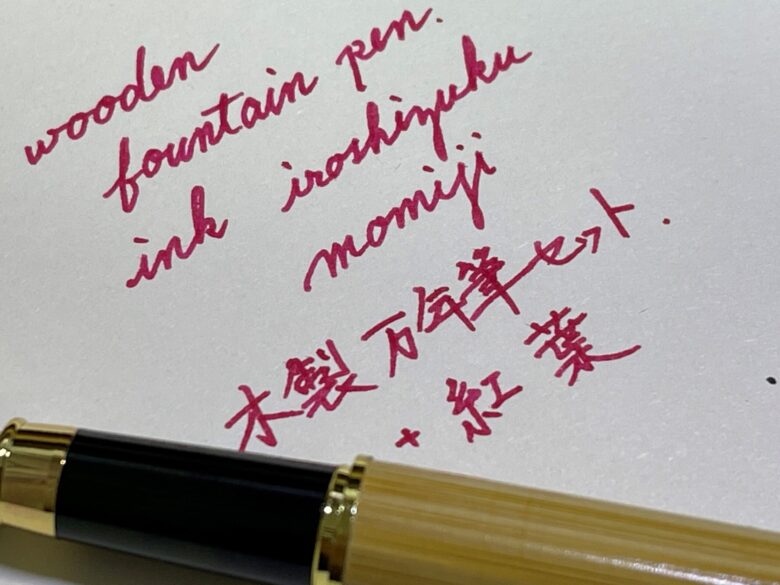 wooden
fountain pen.
ink iroshizuku
momiji
木製万年筆セット.
+ 紅葉